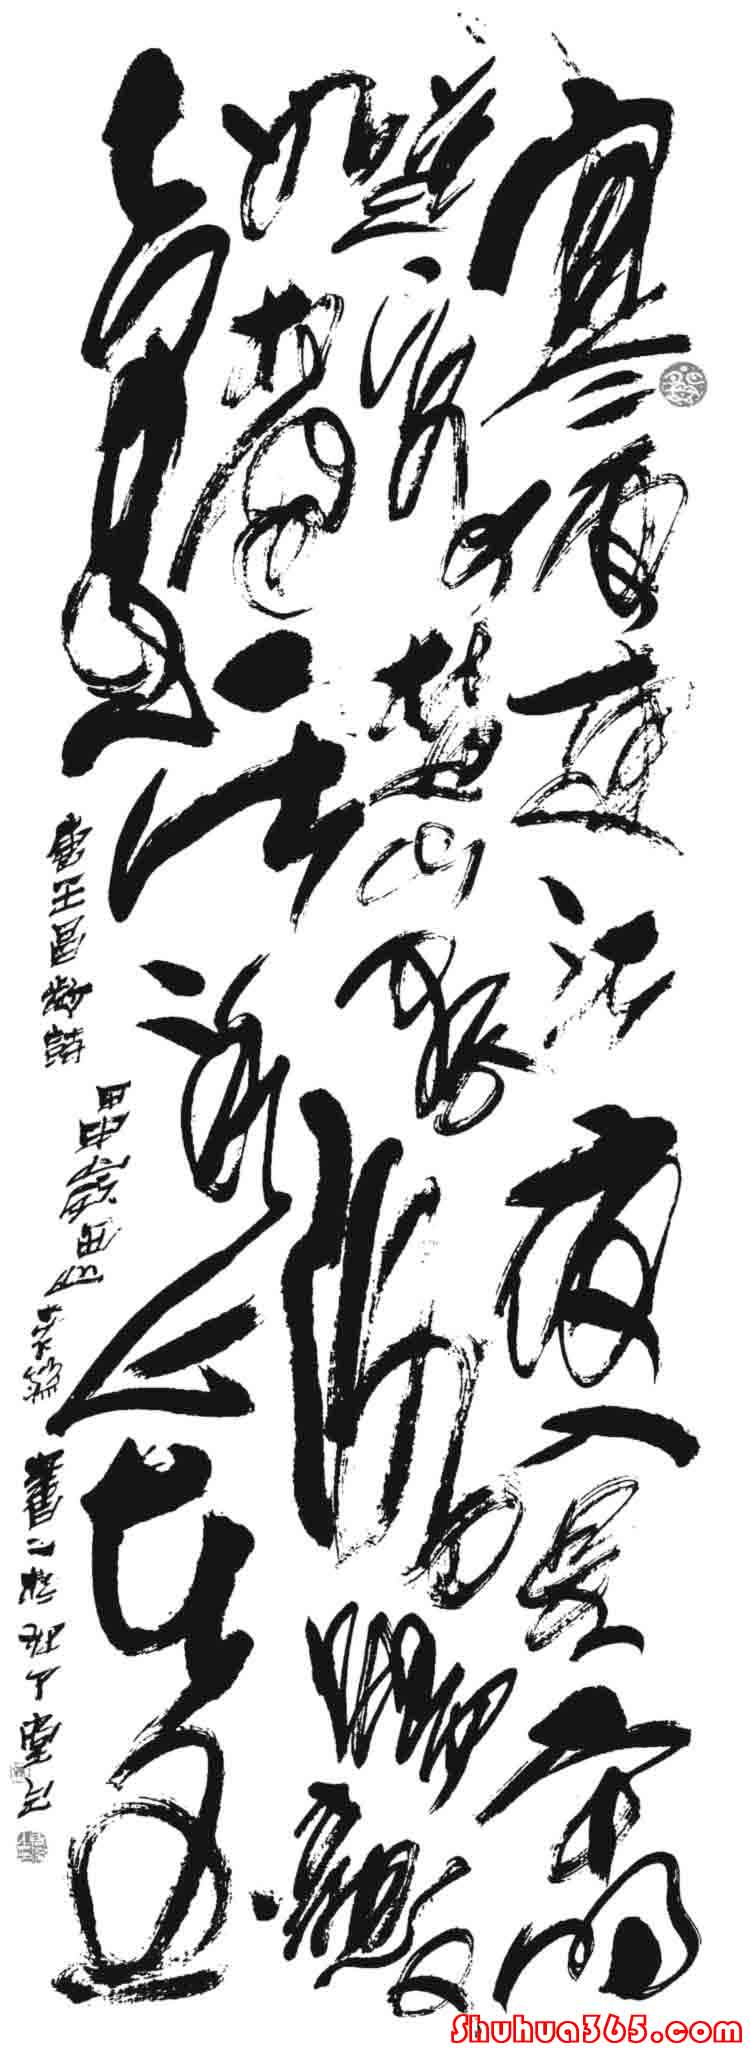 寒雨連江夜入吴平明
送客楚山孤洛陽親友
如相問一片冰心在玉
壺
唐王昌齡詩
甲申歲
Shuhua365.com